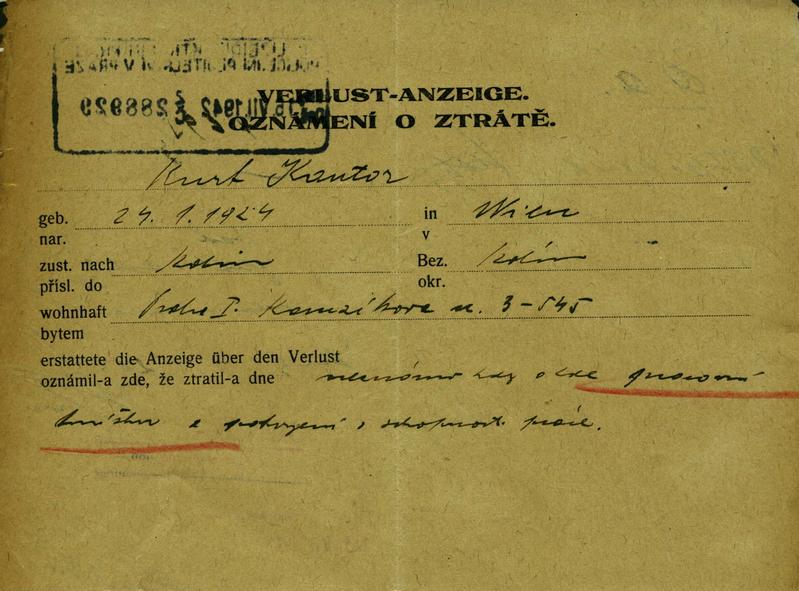 VERLUST-ANZEIGE.
OZNÁMENÍ O ZTRÁTĚ.
Kurt Kantor
geb. 24. 1. 1924 in Wien
nar. v
zust. nach Kolín Bez. Kolín
přísl. do okr.
wohnhaft Praha I. Kamzíkova ul. 3-545
bytem
erstattete die Anzeige über den Verlust
oznámil-a zde, že ztratil-a dne neznámo kdy a kde pracovní
knížku a potvrzení o schopnosti práce.